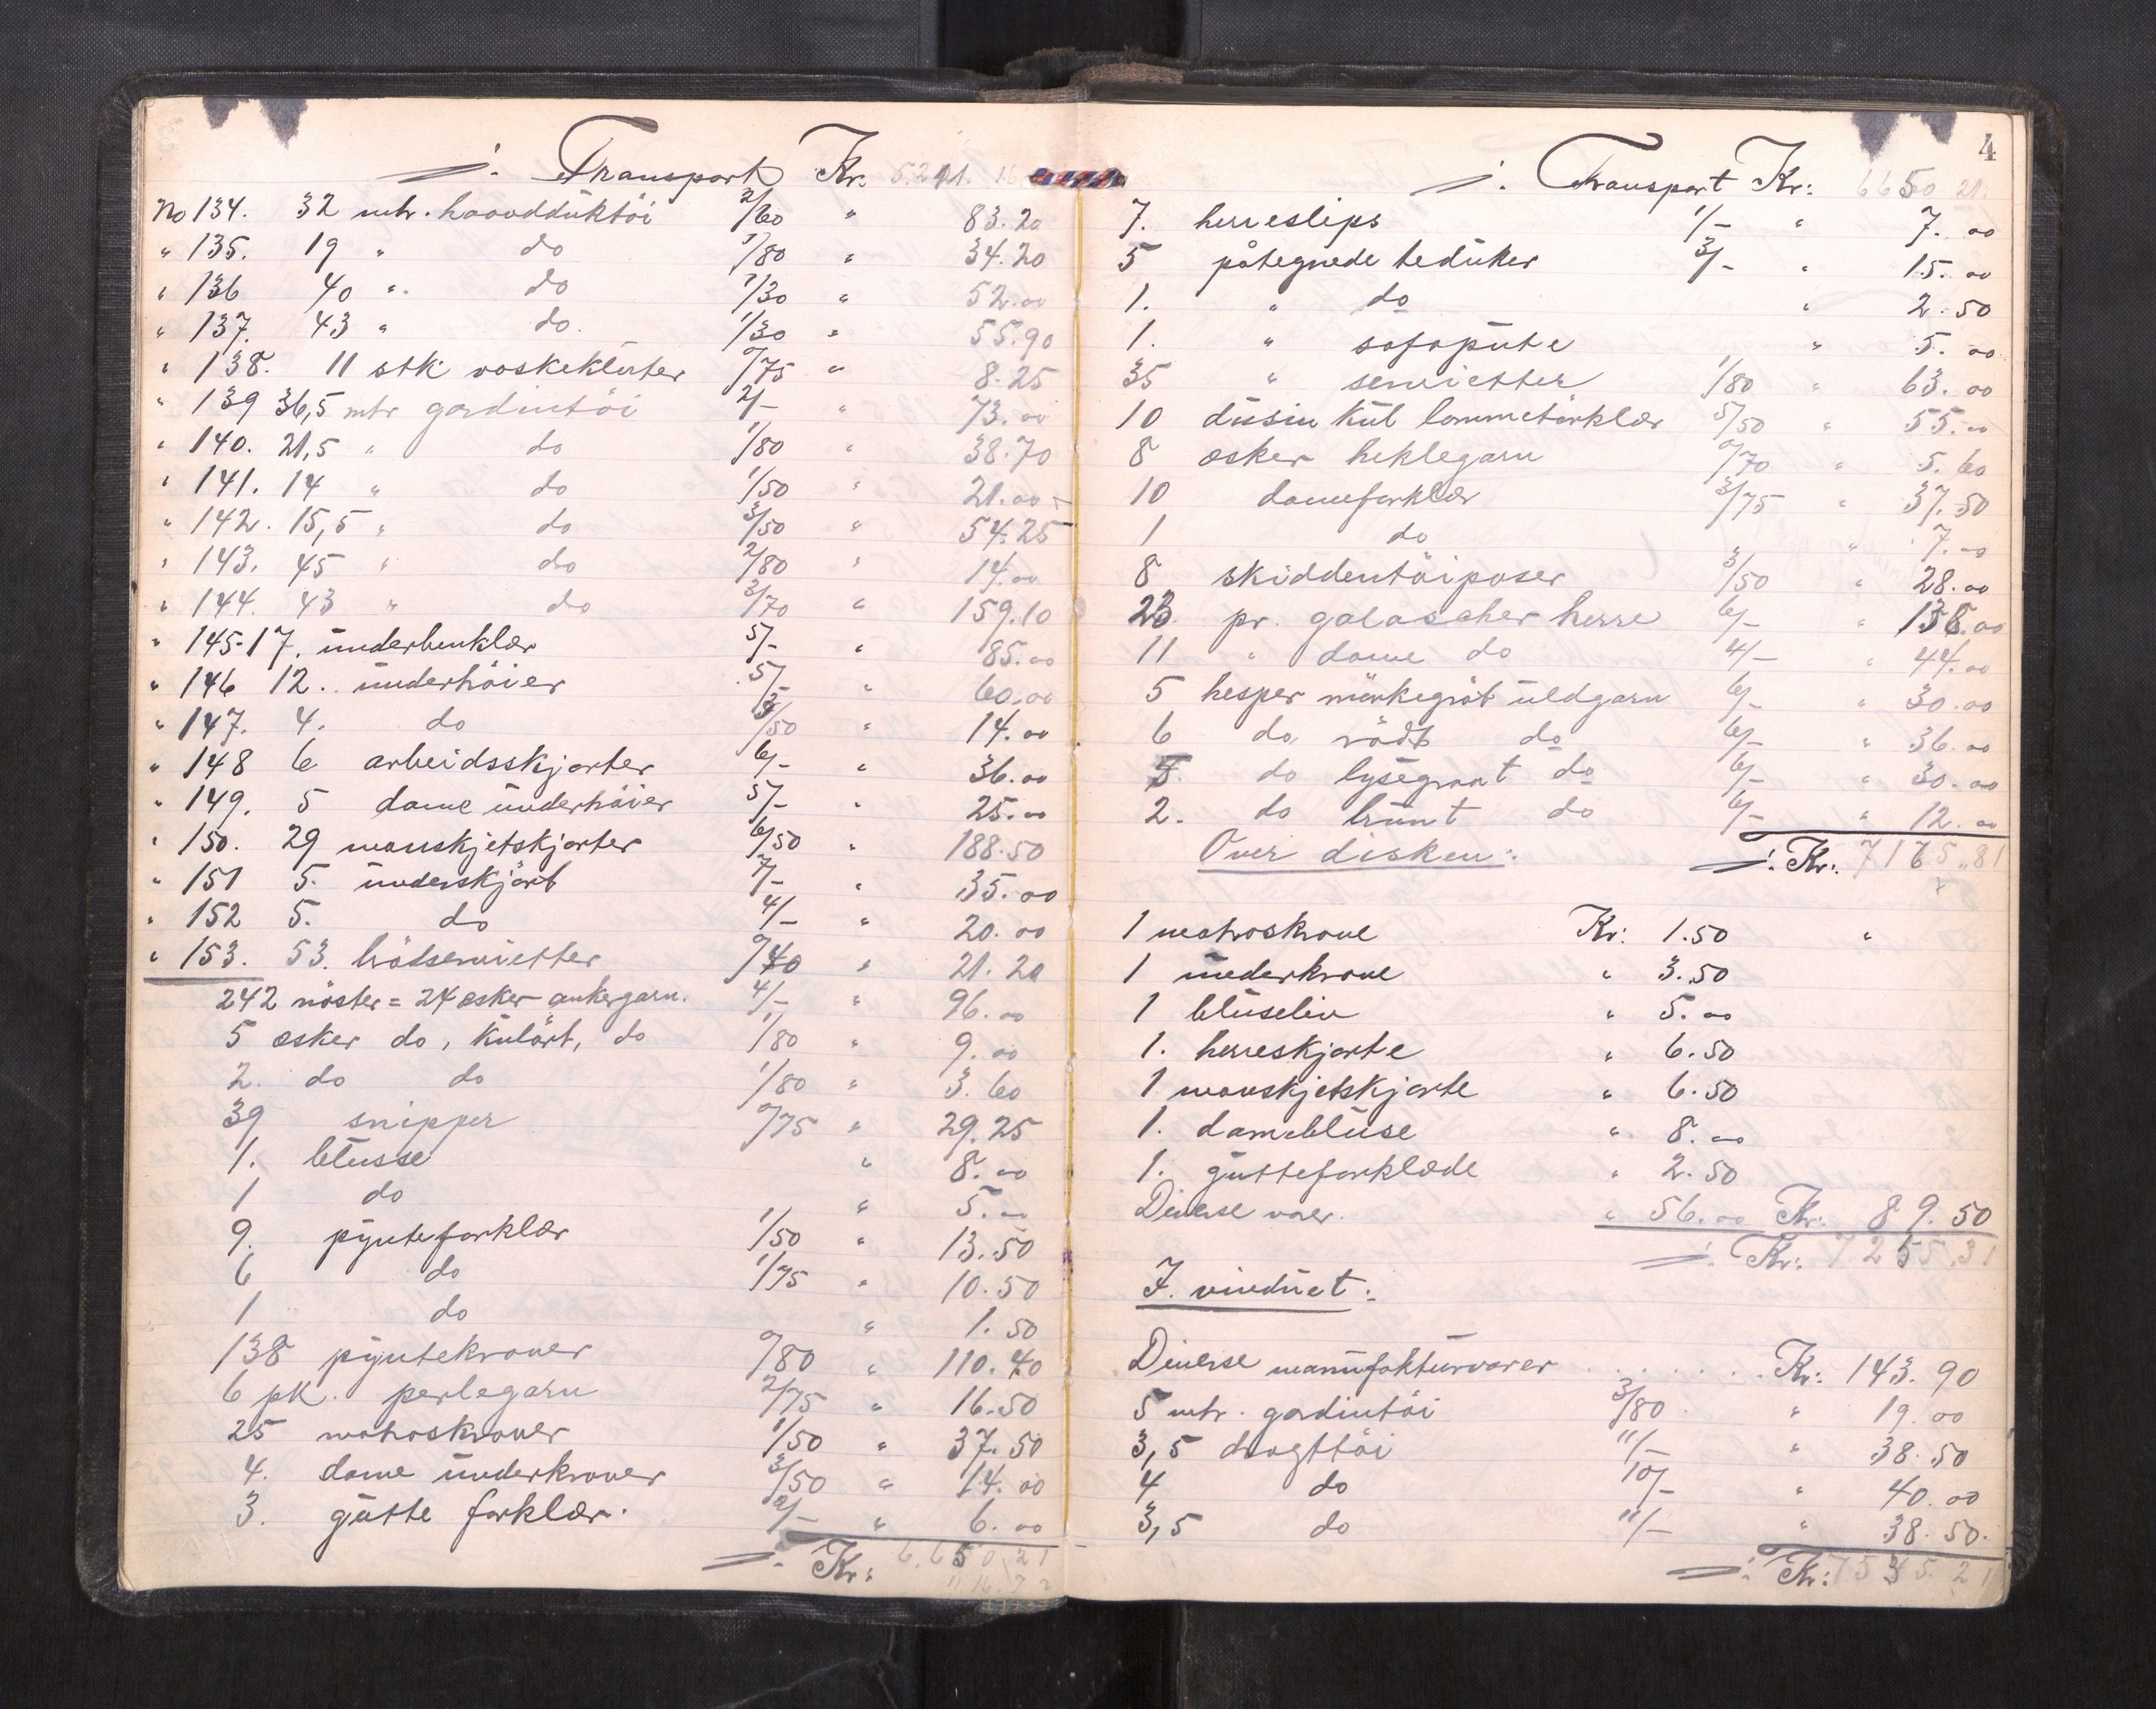 Transport Kr. 5.211.16
No 134. 32 mtr. haanddüktöi 2/60 " 83.20
" 135. 19 " do 1/80 " 34.20
" 136 40 " do 1/30 " 52.00
" 137. 43 " do. 1/30 " 55.90
" 138. 11 stk vaskeklüter 0/75 " 8.25
" 139 36,5 mtr gardintöi 2/- " 73.00
" 140. 21,5 " do 1/80 " 38.70
" 141. 14 " do 1/50 " 21.00
" 142. 15,5 " do 3/50 " 54.25
" 143. 45 " do 2/80 " 14.00
" 144. 43 " do 3/70 " 159.10
" 145. 17. ünderbenklær 5/- " 85.00
" 146 12. ündertröier 5/- " 60.00
" 147. 4. do 3/50 " 14.00
" 148 6 arbeidsskjorter 6/- " 36.00
" 149. 5 dame ündertröier 5/- " 25.00
" 150. 29 manskjetskjorter 6/50 " 188.50
" 151 5. ünderskjört 7/- " 35.00
" 152 5. do 4/- " 20.00
" 153. 53. brödservietter 0/40 " 21.20
242 nöster = 24 æsker ankergarn. 4/- " 96.00
5 æsker do, külört, do 1/80 " 9.00
2. do do 1/80 " 3.60
39 snipper 0/75 " 29.25
1. blüsse " 8.00
1 do " 5.00
9. pynteforklær 1/50 " 13.50
6 do 1/75 " 10.50
1 do " 1.50
138 pyntekraver 0/80 " 110.40
6 pk. perlegarn 2/75 " 16.50
25 matroskraver 1/50 " 37.50
4. dame ünderkraver 3/50 " 14.00
3. gütte forklær. 2/- " 6.00
Kr: 6.650.21
4
Transport Kr: 6650 21.
7. herreslips 1/- " 7.00
5 påtegnede tedüker 3/- " 15.00
1. " do " 2.50
1. " sofapüte " 5.00
35 " servietter 1/80 " 63.00
10 düsin kül lommetörklær 5/50 " 55.00
8 æsker heklegarn 0/70 " 5.60
10 dameforklær 3/75 " 37.50
1 do " 7.00
8 skiddentöiposer 3/50 " 28.00
23 pr. galoscher herre 6/- " 138.00
11 " dame do 4/- " 44.00
5 hesper mörkegråt üldgarn 6/- " 30.00
6 do rödt do 6/- " 36.00
5. do lysegraat do 6/- " 30.00
2. do brünt do 6/- " 12.00
Over disken: Kr: 7165.81
1 matroskrave Kr: 1.50 "
1 ünderkrave " 3.50
1 blüseliv " 5.00
1. herreskjorte " 6.50
1 manskjetskjorte " 6.50
1. dameblüse " 8.00
1. gütteforklæde " 2.50
Diverse varer. " 56.00 Kr: 89.50
Kr: 7255.31
I. vindüet:
Diverse manüfaktürvarer ....... Kr: 143.90
5 mtr. gardintöi 3/80 " 19.00
3,5 dragttöi 11/- " 38.50
4 do 10/- " 40.00
3,5 do 11/- " 38.50.
Kr: 7535.21